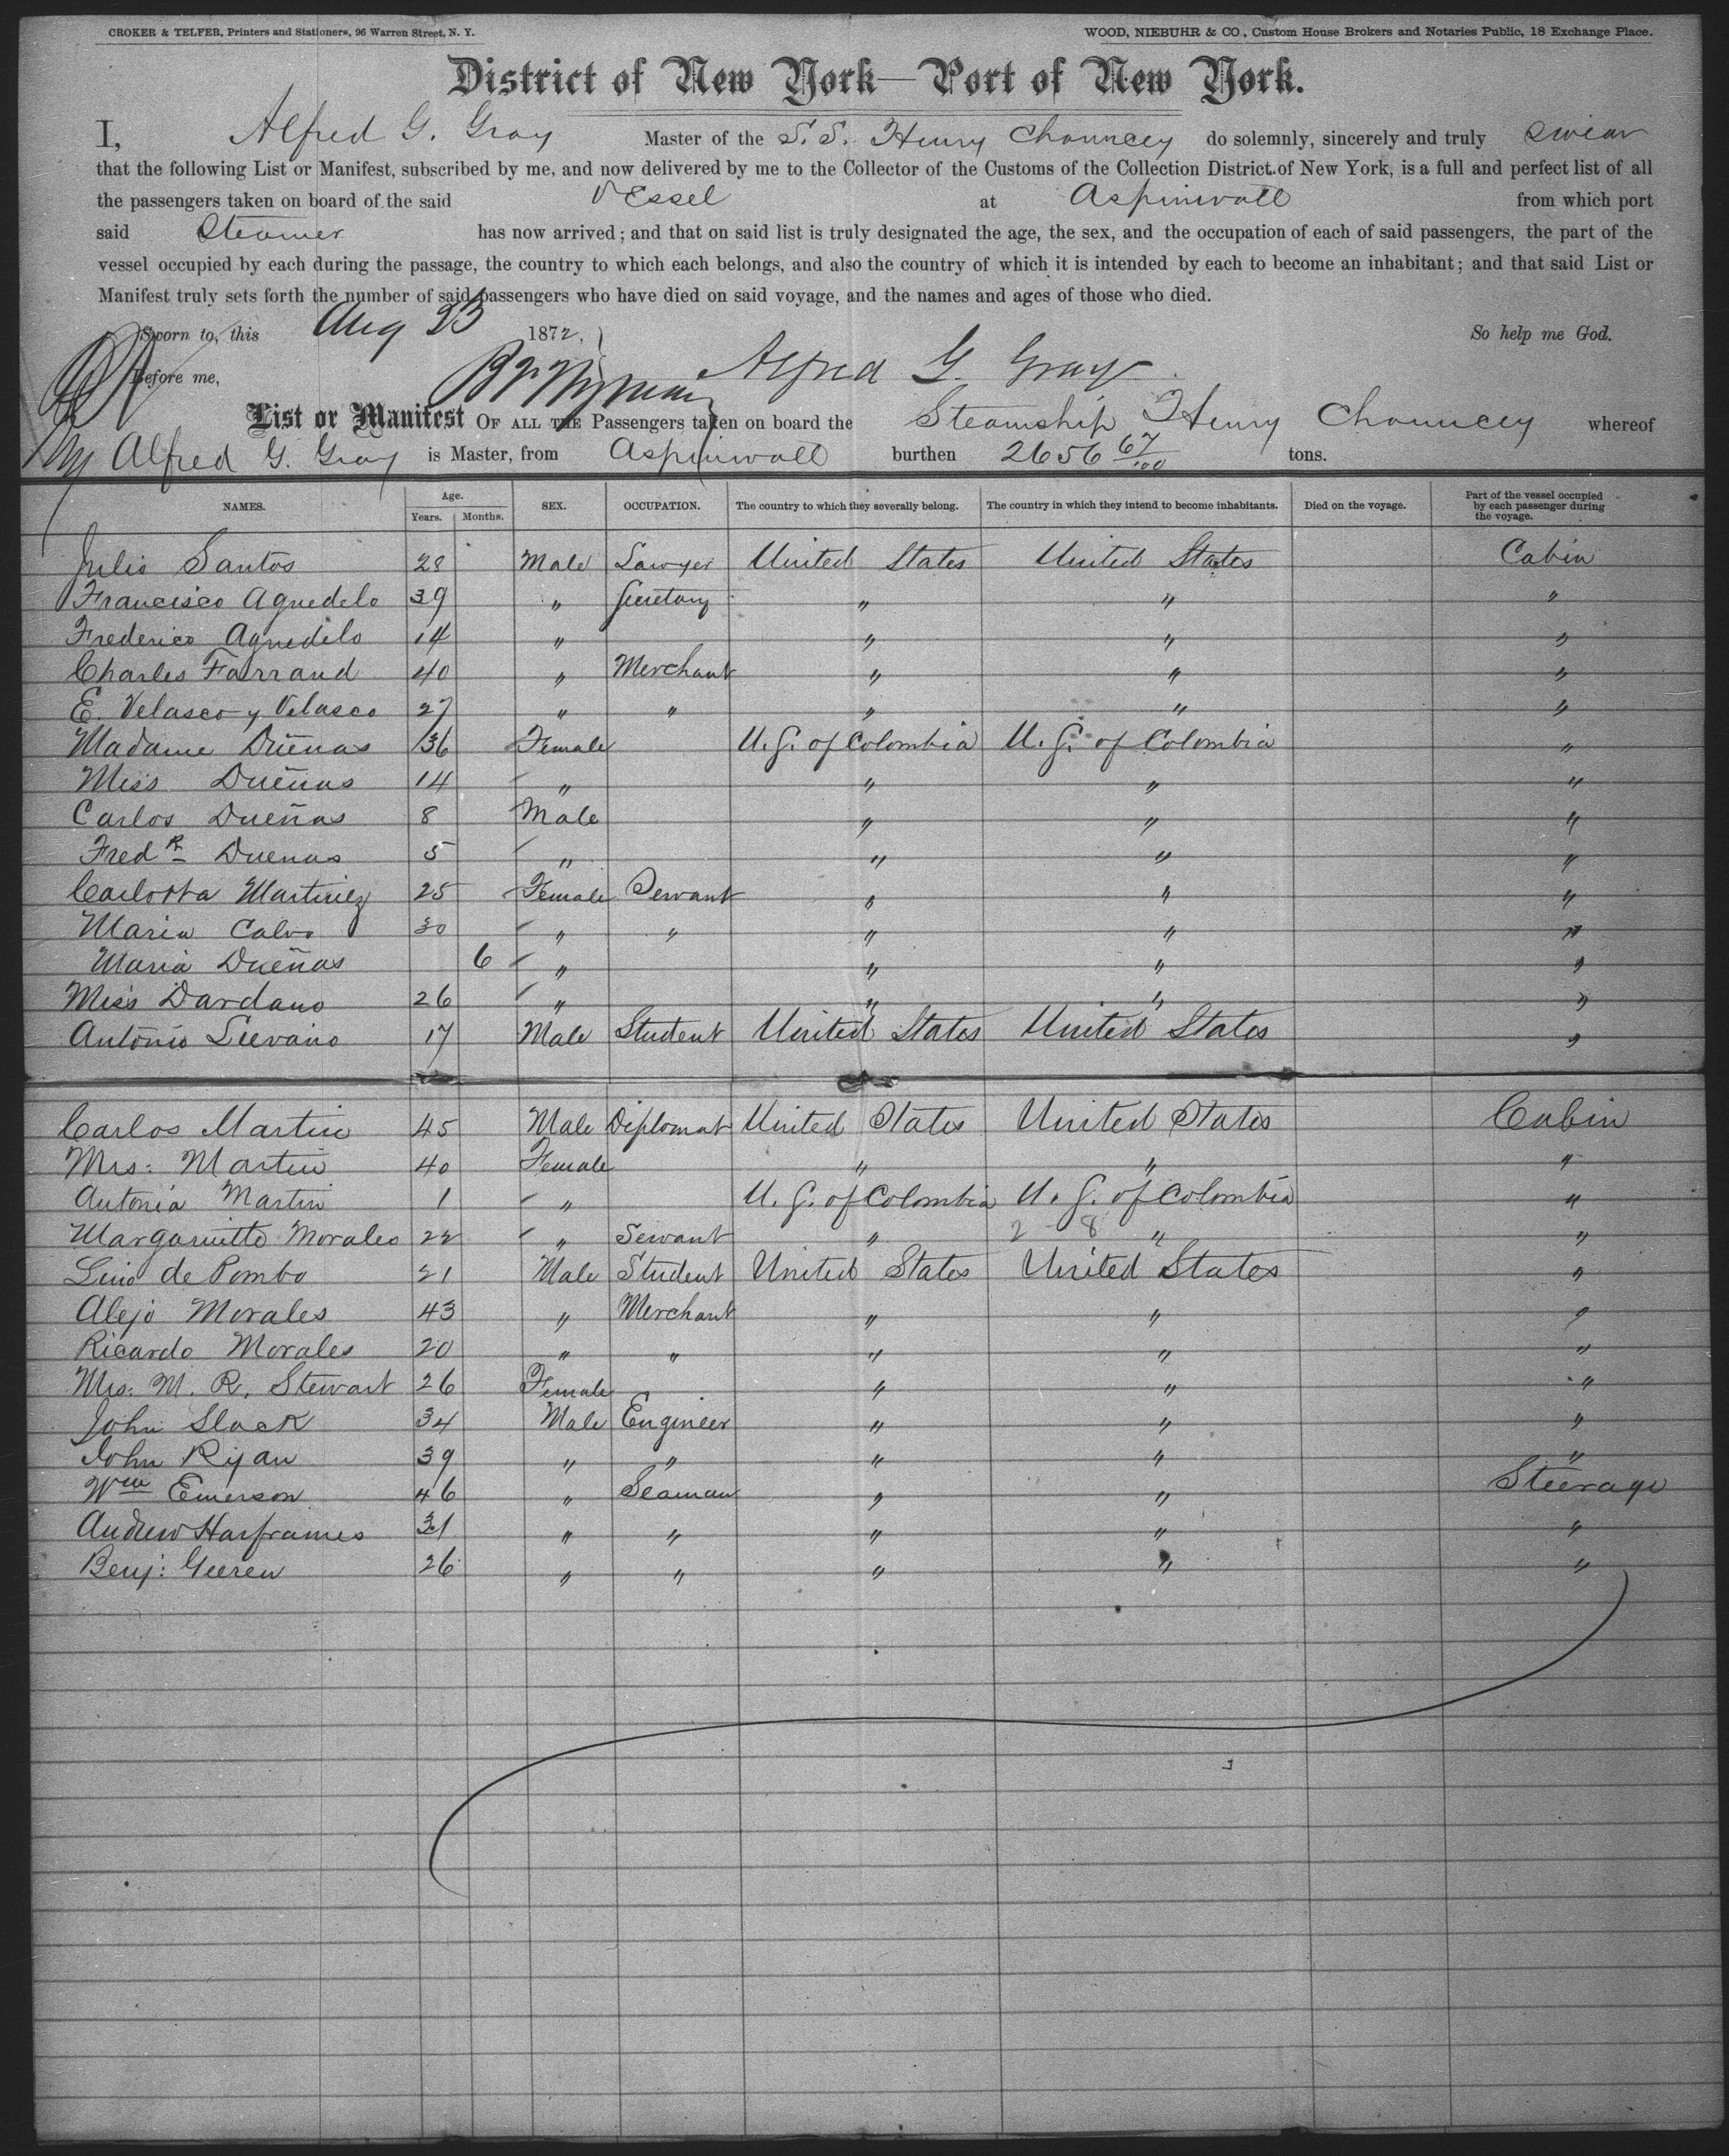 CROKER & TELFER, Printers and Stationers, 96 Warren Street, N. Y. WOOD, NIEBUHR & CO., Custom House Brokers and Notaries Public, 18 Exchange Place.
District of New York—Port of New York.
I, Alfred G. Gray Master of the S.S. Henry Chauncey do solemnly, sincerely and truly swear
that the following List or Manifest, subscribed by me, and now delivered by me to the Collector of the Customs of the Collection District of New York, is a full and perfect list of all
the passengers taken on board of the said Vessel at Aspinwall from which port
said Steamer has now arrived; and that on said list is truly designated the age, the sex, and the occupation of each of said passengers, the part of the
vessel occupied by each during the passage, the country to which each belongs, and also the country of which it is intended by each to become an inhabitant; and that said List or
Manifest truly sets forth the number of said passengers who have died on said voyage, and the names and ages of those who died.
Sworn to, this Aug 23 1872, So help me God.
Before me, Alfred G. Gray
List or Manifest OF ALL THE Passengers taken on board the Steamship Henry Chauncey whereof
Alfred G. Gray is Master, from Aspinwall burthen 2656 67/100 tons.
NAMES. Age. Years. Months. SEX. OCCUPATION. The country to which they severally belong. The country in which they intend to become inhabitants. Died on the voyage. Part of the vessel occupied by each passenger during the voyage.
Julio Santos 28 Male Lawyer United States United States Cabin
Francisco Agudelo 39 " Secretary " " "
Frederico Agudelo 14 " " " "
Charles Farrand 40 " Merchant " " "
E. Velasco y Velasco 27 " " " " "
Madame Dueñas 36 Female U.S. of Colombia U.S. of Colombia "
Miss Dueñas 14 " " " "
Carlos Dueñas 8 Male " " "
Fredk Duenas 5 " " " "
Carlotta Martinez 25 Female Servant " " "
Maria Calvo 30 " " " " "
Maria Dueñas 6 " " " "
Miss Dardano 26 " " " "
Antonio Lievano 17 Male Student United States United States "
Carlos Martin 45 Male Diplomat United States United States Cabin
Mrs: Martin 40 Female " " "
Antonia Martin 1 " U.S. of Colombia U.S. of Colombia "
Margaritta Morales 22 " Servant " 2 8 " "
Lino de Pombo 21 Male Student United States United States "
Alejo Morales 43 " Merchant " " "
Ricardo Morales 20 " " " " "
Mrs: M. R. Stewart 26 Female " " "
John Slack 34 Male Engineer " " "
John Ryan 39 " " " " "
Wm Emerson 46 " Seaman " " Steerage
Andrew Harframes 31 " " " " "
Benj: Geeren 26 " " " " "